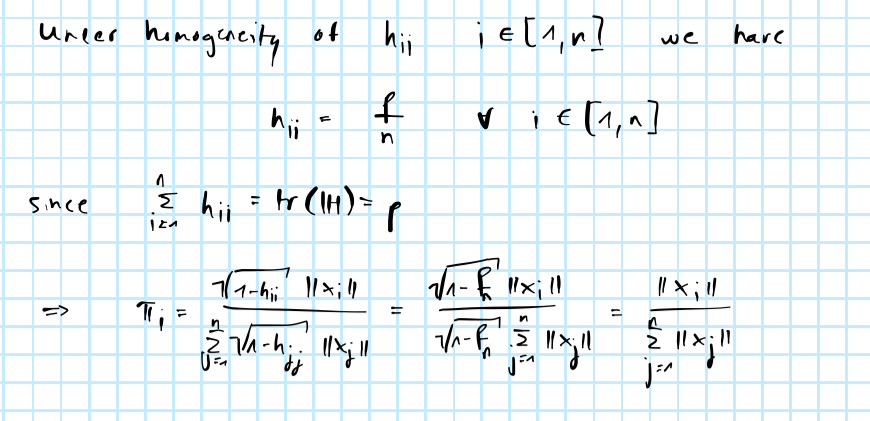 Under homogeneity of h_ii i ∈ [1,n] we have
h_ii = p/n ∀ i ∈ [1,n]
since ∑_{i=1}^{n} h_ii = tr(ℍ) = p
⇒ π_i = √(1-h_ii) ||x_i|| / ∑_{j=1}^{n} √(1-h_jj) ||x_j|| = √(1-p/n) ||x_i|| / √(1-p/n) ∑_{j=1}^{n} ||x_j|| = ||x_i|| / ∑_{j=1}^{n} ||x_j||